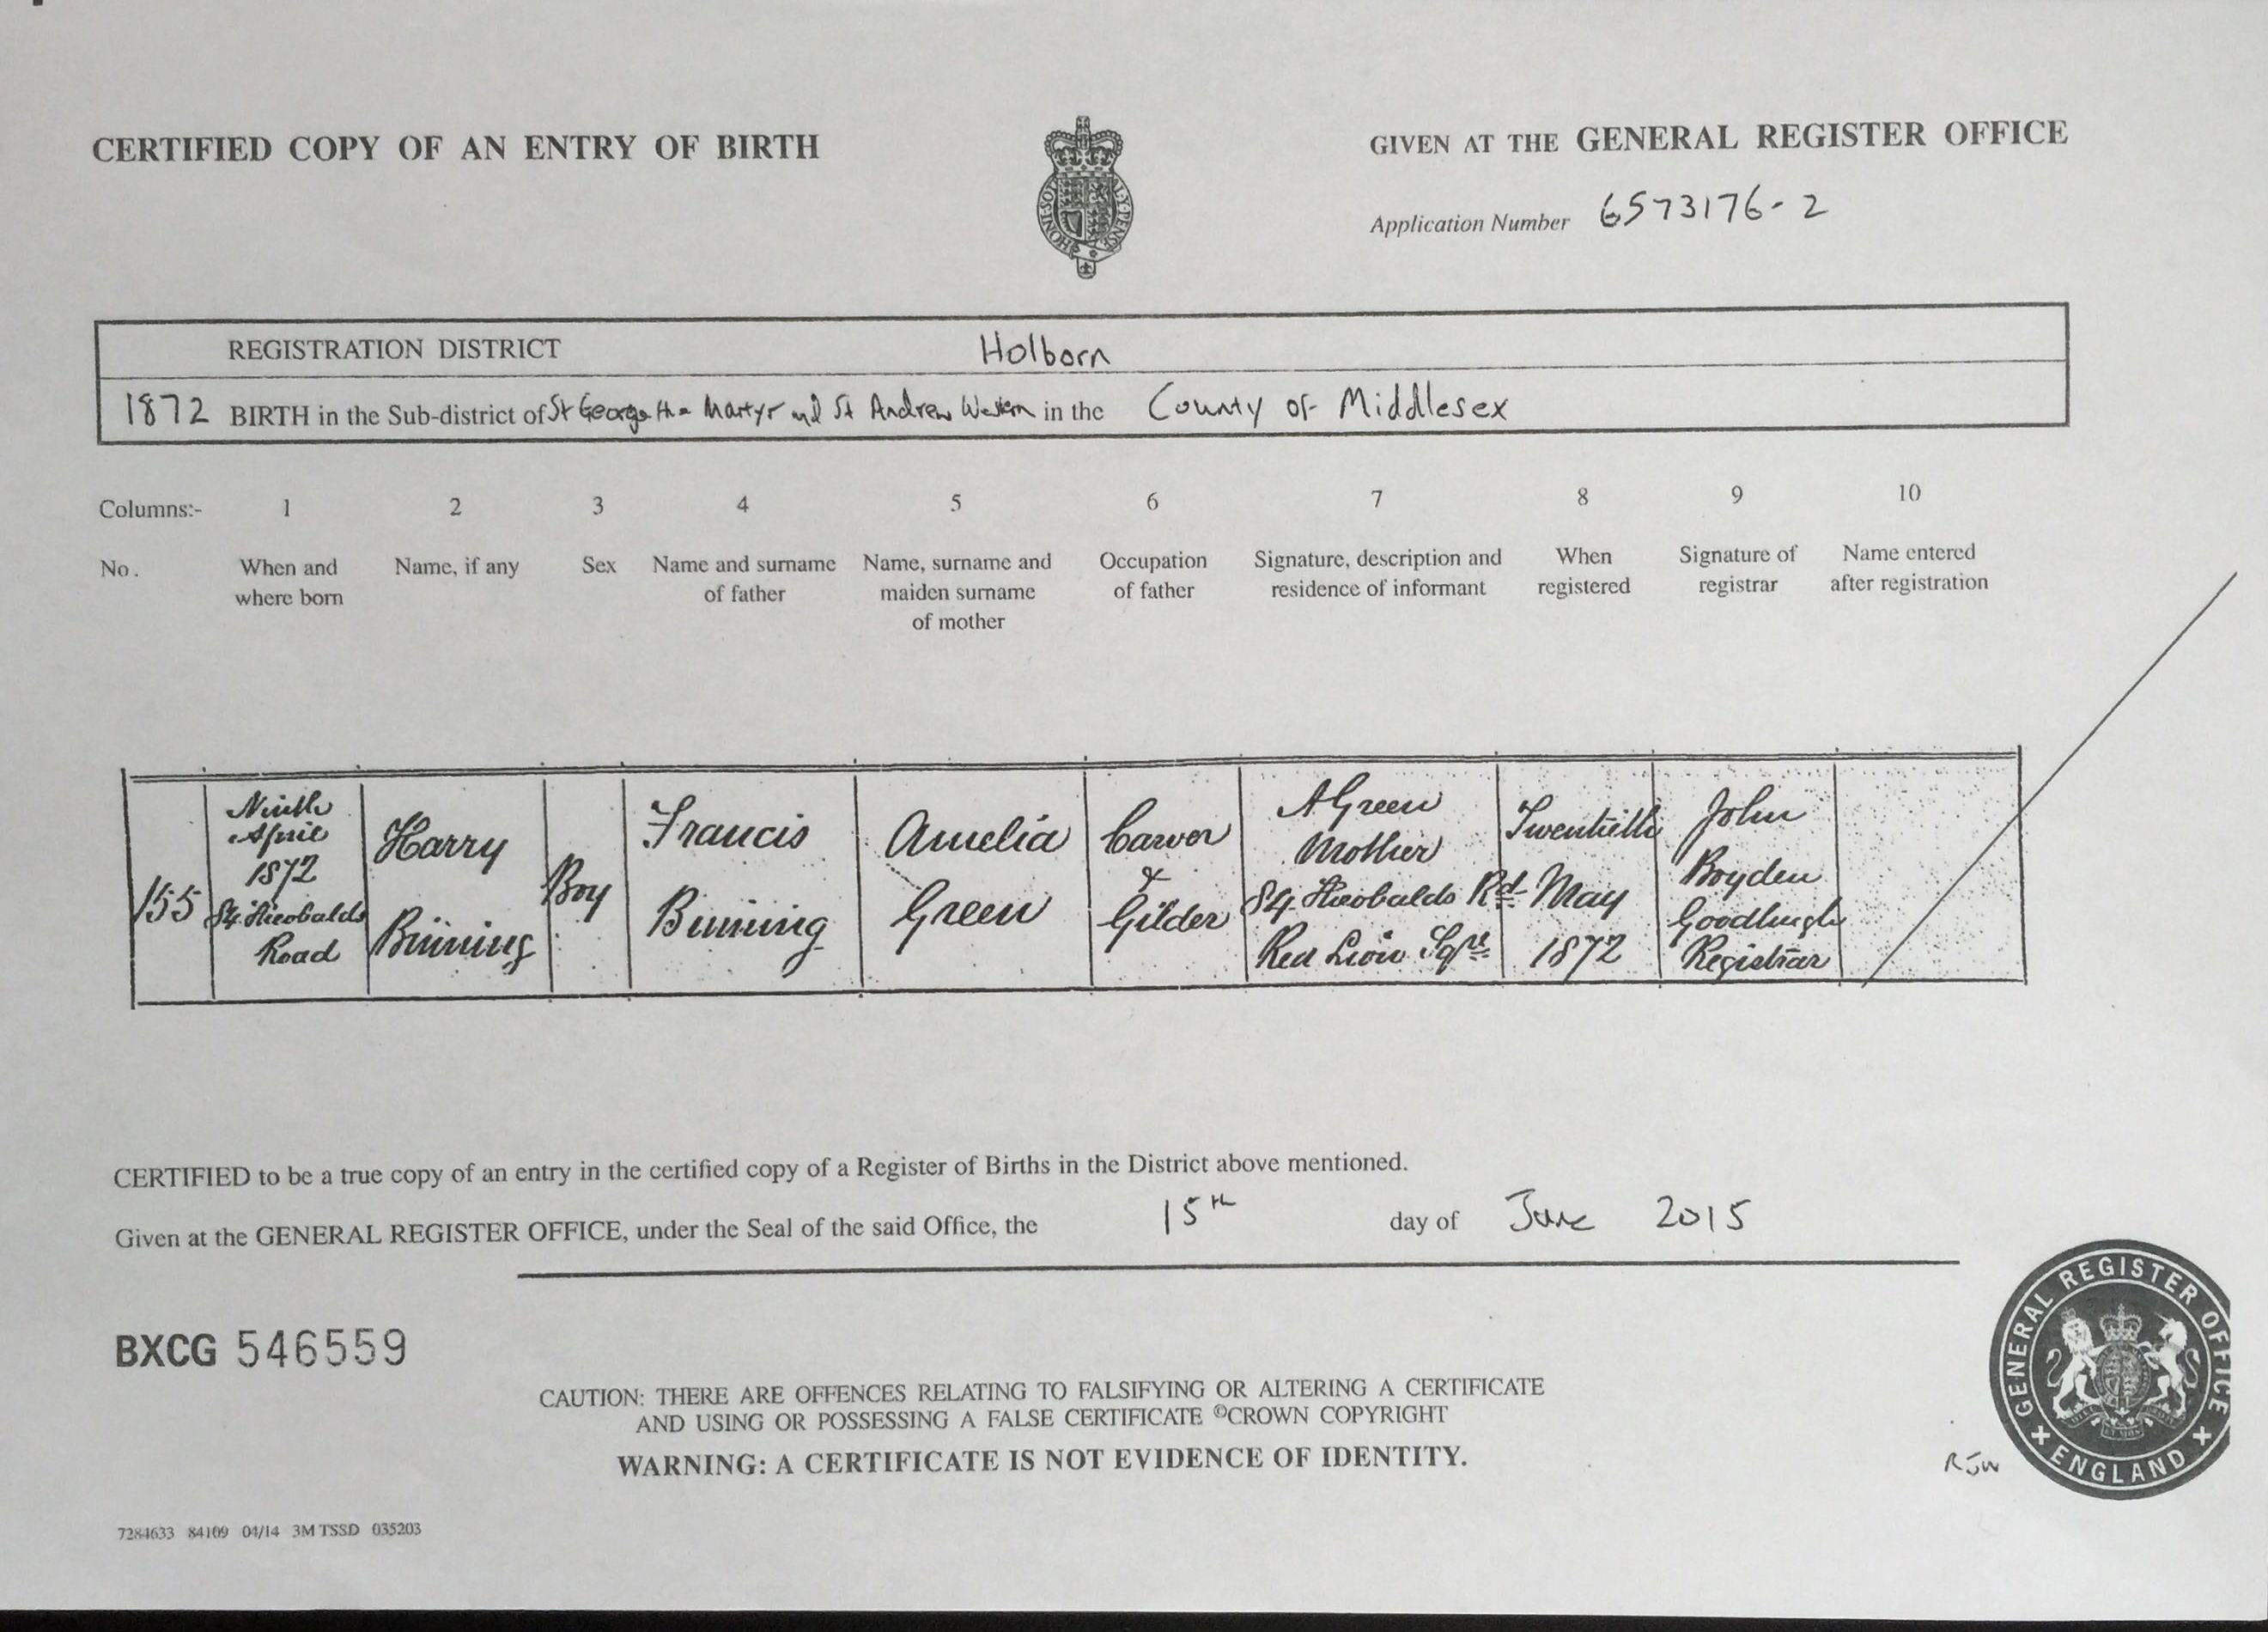 CERTIFIED COPY OF AN ENTRY OF BIRTH
GIVEN AT THE GENERAL REGISTER OFFICE
Application Number 6573176-2
REGISTRATION DISTRICT Holborn
1872 BIRTH in the Sub-district of St George the Martyr and St Andrew Western in the County of Middlesex
Columns:- 1 2 3 4 5 6 7 8 9 10
No.
When and
where born
Name, if any
Sex
Name and surname
of father
Name, surname and
maiden surname
of mother
Occupation
of father
Signature, description and
residence of informant
When
registered
Signature of
registrar
Name entered
after registration
155
Ninth
April
1872
84 Theobalds
Road
Harry
Binning
Boy
Francis
Binning
Amelia
Green
Carver
&
Gilder
A Green
Mother
84 Theobalds Rd
Red Lion Sqre
Twentieth
May
1872
John
Boyden
Registrar
CERTIFIED to be a true copy of an entry in the certified copy of a Register of Births in the District above mentioned.
Given at the GENERAL REGISTER OFFICE, under the Seal of the said Office, the 15th day of June 2015
BXCG 546559
CAUTION: THERE ARE OFFENCES RELATING TO FALSIFYING OR ALTERING A CERTIFICATE
AND USING OR POSSESSING A FALSE CERTIFICATE ©CROWN COPYRIGHT
WARNING: A CERTIFICATE IS NOT EVIDENCE OF IDENTITY.
RJW
GENERAL REGISTER OFFICE
ENGLAND
7284633 84109 04/14 3M TSSD 035203